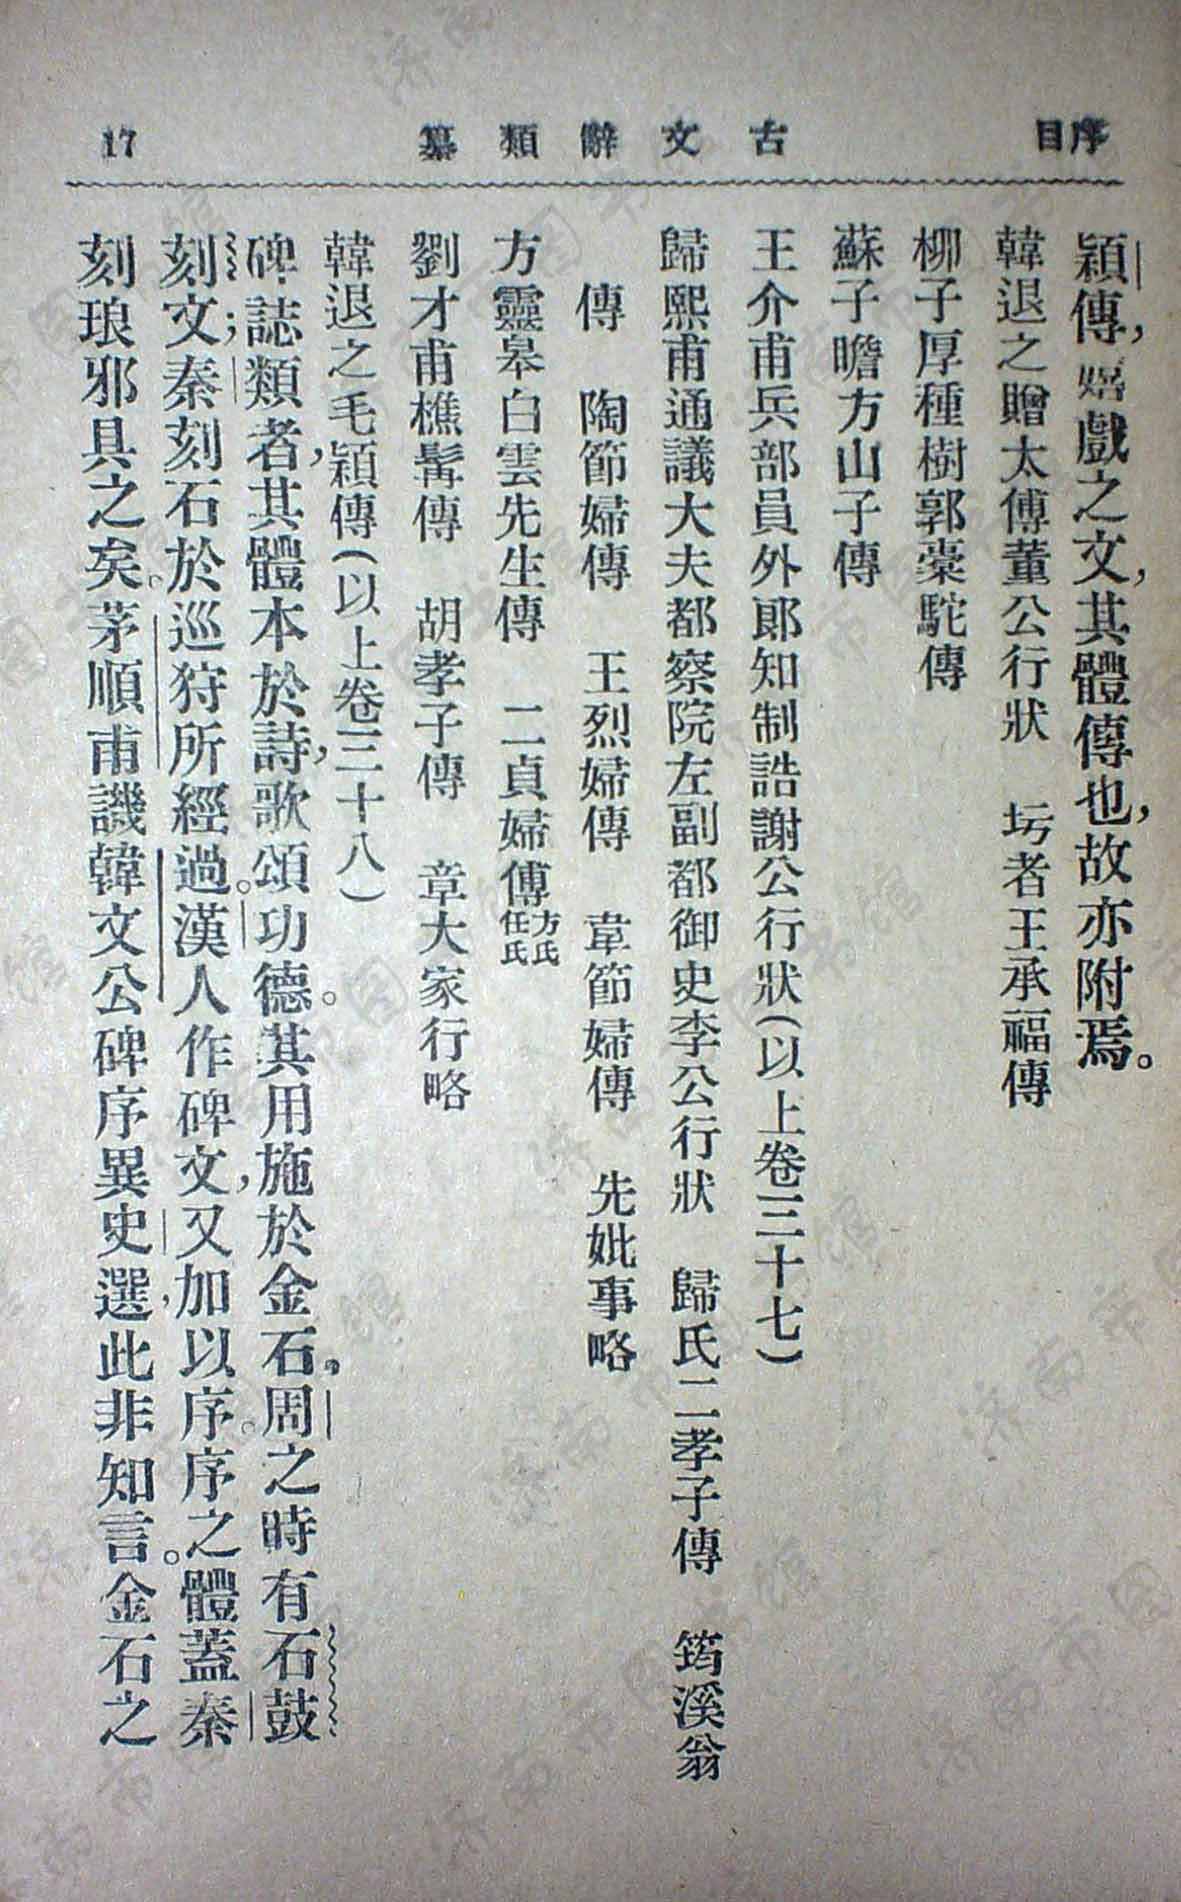 序目 古文辭類纂 17
穎傳，嬉戲之文，其體傳也，故亦附焉。
韓退之贈太傅董公行狀　圬者王承福傳
柳子厚種樹郭橐駝傳
蘇子瞻方山子傳
王介甫兵部員外郎知制誥謝公行狀（以上卷三十七）
歸熙甫通議大夫都察院左副都御史李公行狀　歸氏二孝子傳　筠溪翁
傳　陶節婦傳　王烈婦傳　韋節婦傳　先妣事略
方靈皋白雲先生傳　二貞婦傳方氏任氏
劉才甫樵髯傳　胡孝子傳　章大家行略
韓退之毛穎傳（以上卷三十八）
碑誌類者，其體本於詩，歌頌功德。其用施於金石，周之時有石鼓
刻文；秦刻石於巡狩所經過。漢人作碑文，又加以序。序之體，蓋秦
刻琅邪具之矣。茅順甫譏韓文公碑序異史遷，此非知言。金石之
濟南市图书馆